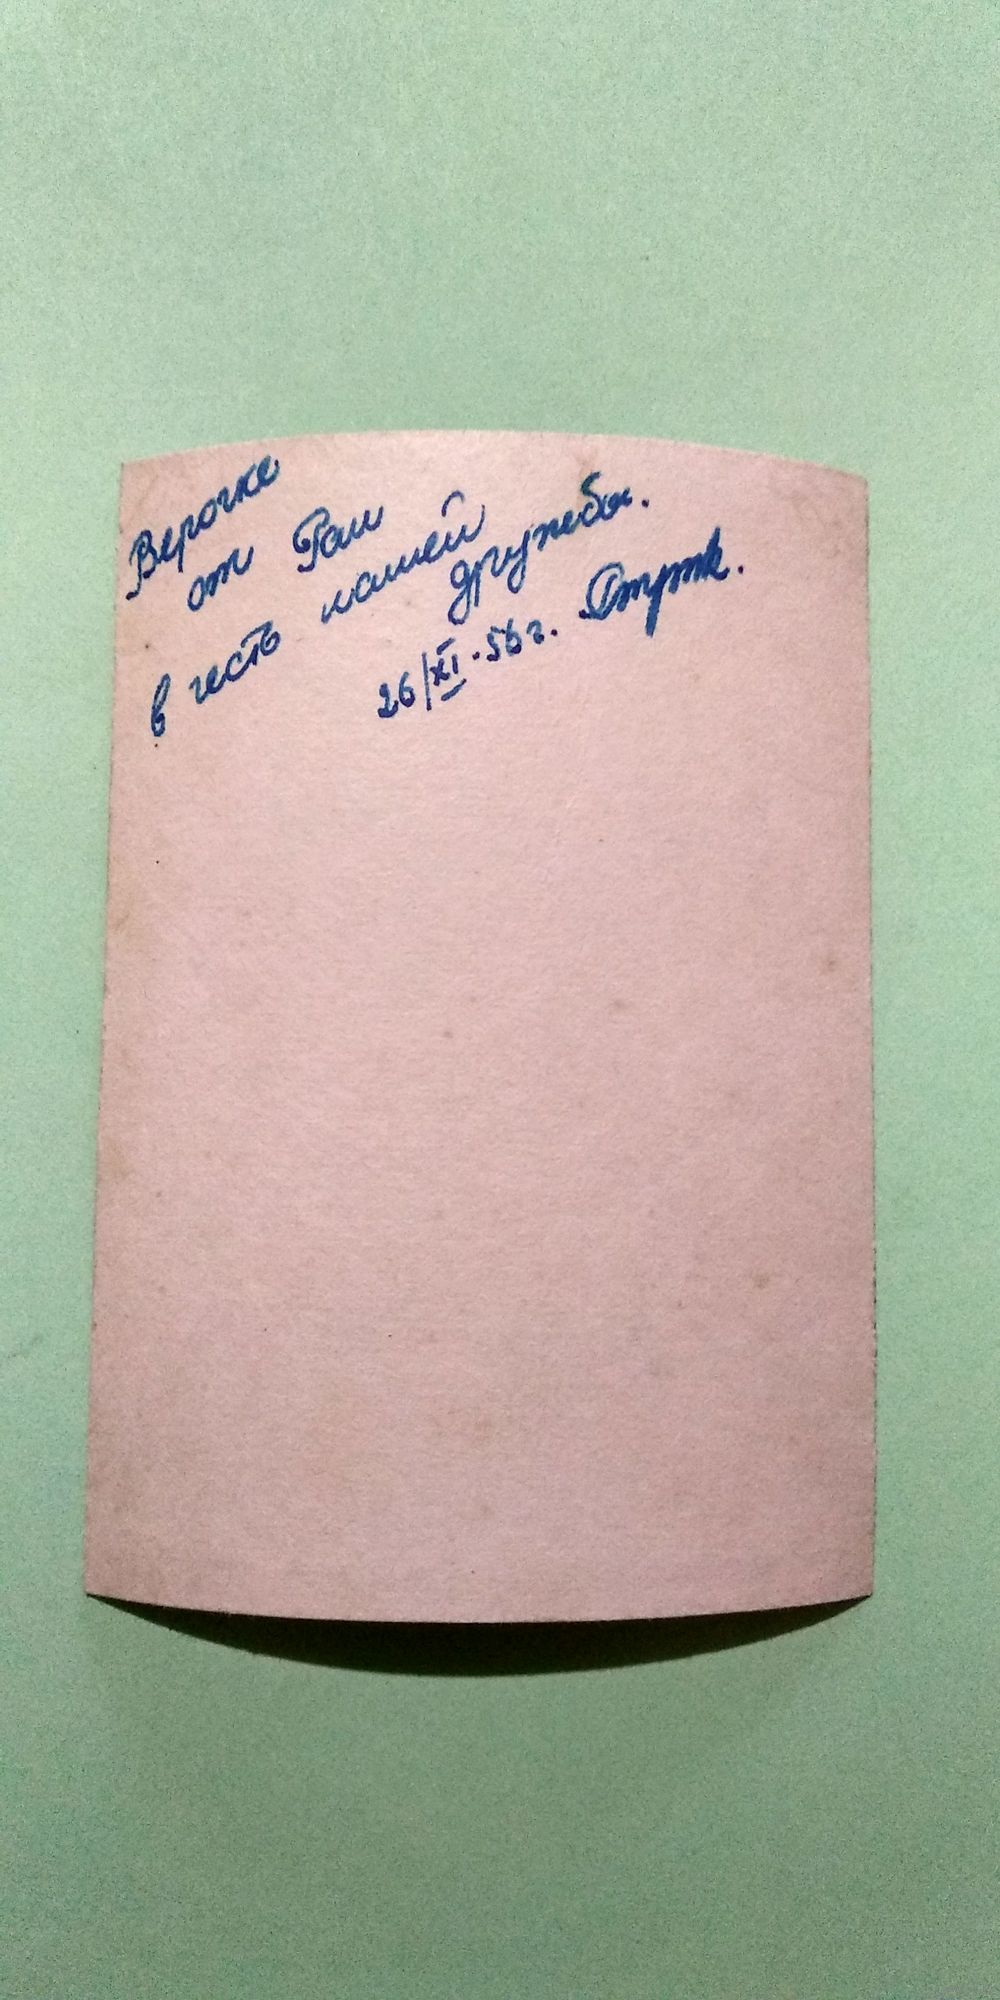 Верочке
от Раи
в честь нашей
дружбы.
26/XI.56г.